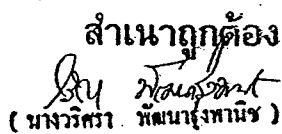 สำเนาถูกต้อง
( นางวริศรา พัฒนารุ่งพานิช )